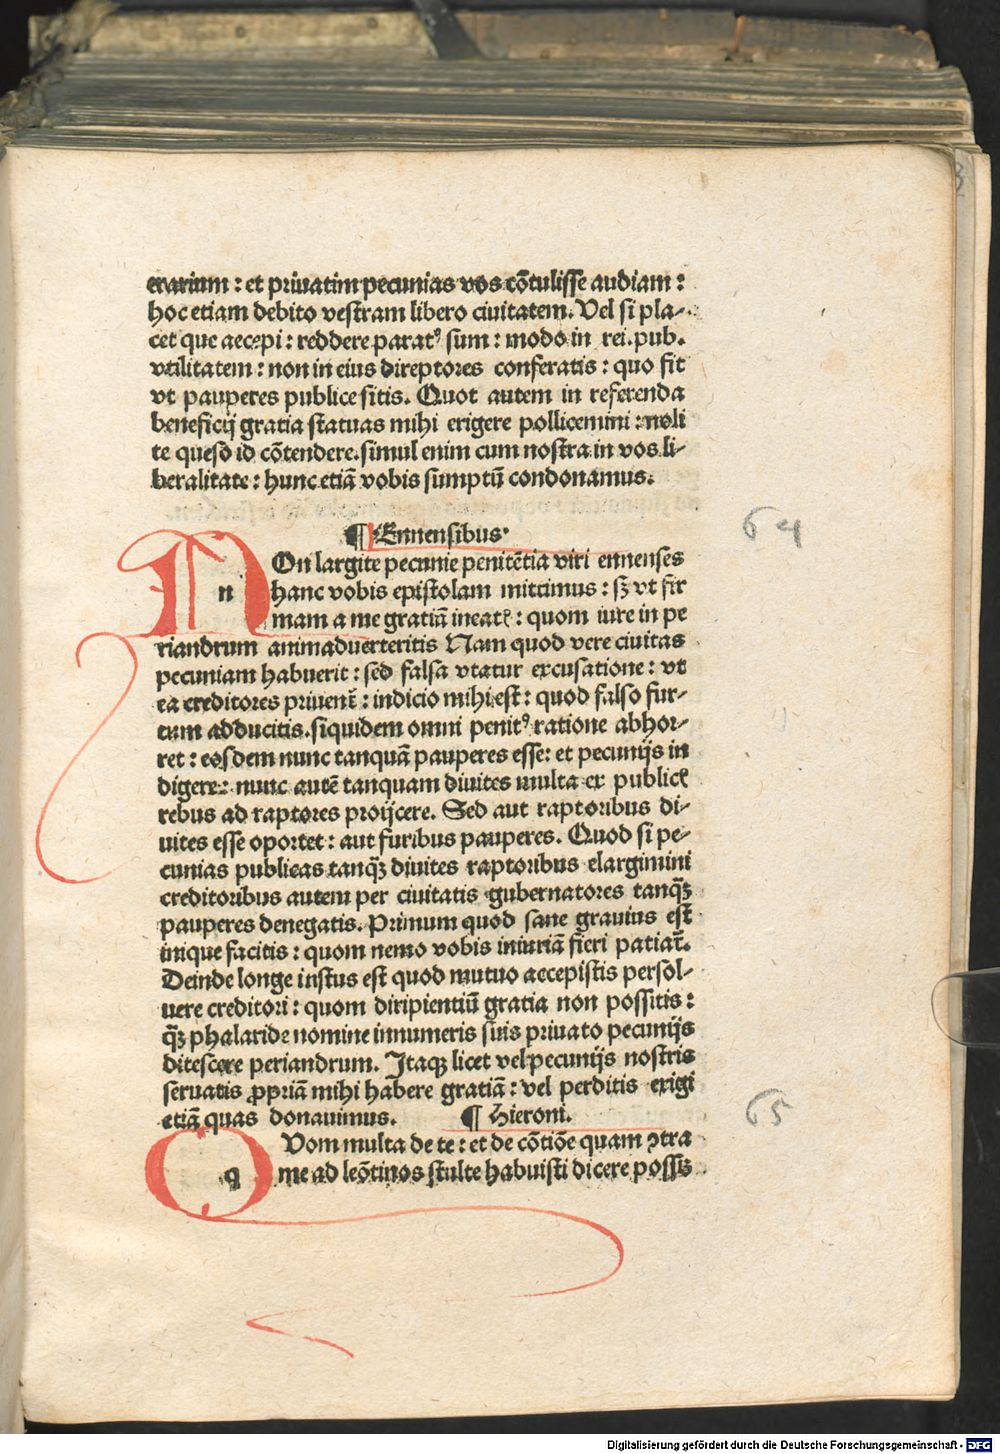 erarium : et priuatim pecunias vos cõtulisse audiam :
hoc etiam debito vestram libero ciuitatem. Vel si pla-
cet que accepi : reddere paratꝰ sum : modo in rei. pub.
vtilitatem : non in eius direptores conferatis : quo fit
vt pauperes publice sitis. Quot autem in referenda
beneficij gratia statuas mihi erigere pollicemini : noli
te queso id cõtendere. simul enim cum nostra in vos li-
beralitate : hunc etiã vobis sumptũ condonamus.
¶ Ennensibus.
64
n
On largite pecunie penitẽtia viri ennenses
hanc vobis epistolam mittimus : sꝫ vt fir
mam a me gratiã ineatꝭ : quom iure in pe
riandrum animaduerteritis Nam quod vere ciuitas
pecuniam habuerit : sed falsa vtatur excusatione : vt
ea creditores priuent̃ : indicio mihi est : quod falso fur-
tum adducitis. siquidem omni penitꝰ ratione abhor-
ret : eosdem nunc tanquã pauperes esse : et pecunijs in
digere : nunc autẽ tanquam diuites multa ex publicꝭ
rebus ad raptores proijcere. Sed aut raptoribus di-
uites esse oportet : aut furibus pauperes. Quod si pe-
cunias publicas tanqꝫ diuites raptoribus elargimini
creditoribus autem per ciuitatis gubernatores tanqꝫ
pauperes denegatis. Primum quod sane grauius est
inique facitis : quom nemo vobis iniuriã fieri patiat̃.
Deinde longe iustus est quod mutuo accepistis persol-
uere creditori : quom diripientiũ gratia non possitis :
qꝫ phalaride nomine innumeris suis priuato pecunijs
ditescere periandrum. Itaqꝫ licet vel pecunijs nostris
seruatis ꝓpriã mihi habere gratiã : vel perditis exigi
etiã quas donauimus. ¶ Hieroni.
65
q
Vom multa de te : et de cõtiõe quam ꝯtra
me ad leõtinos stulte habuisti dicere possꝫ
Digitalisierung gefördert durch die Deutsche Forschungsgemeinschaft - DFG